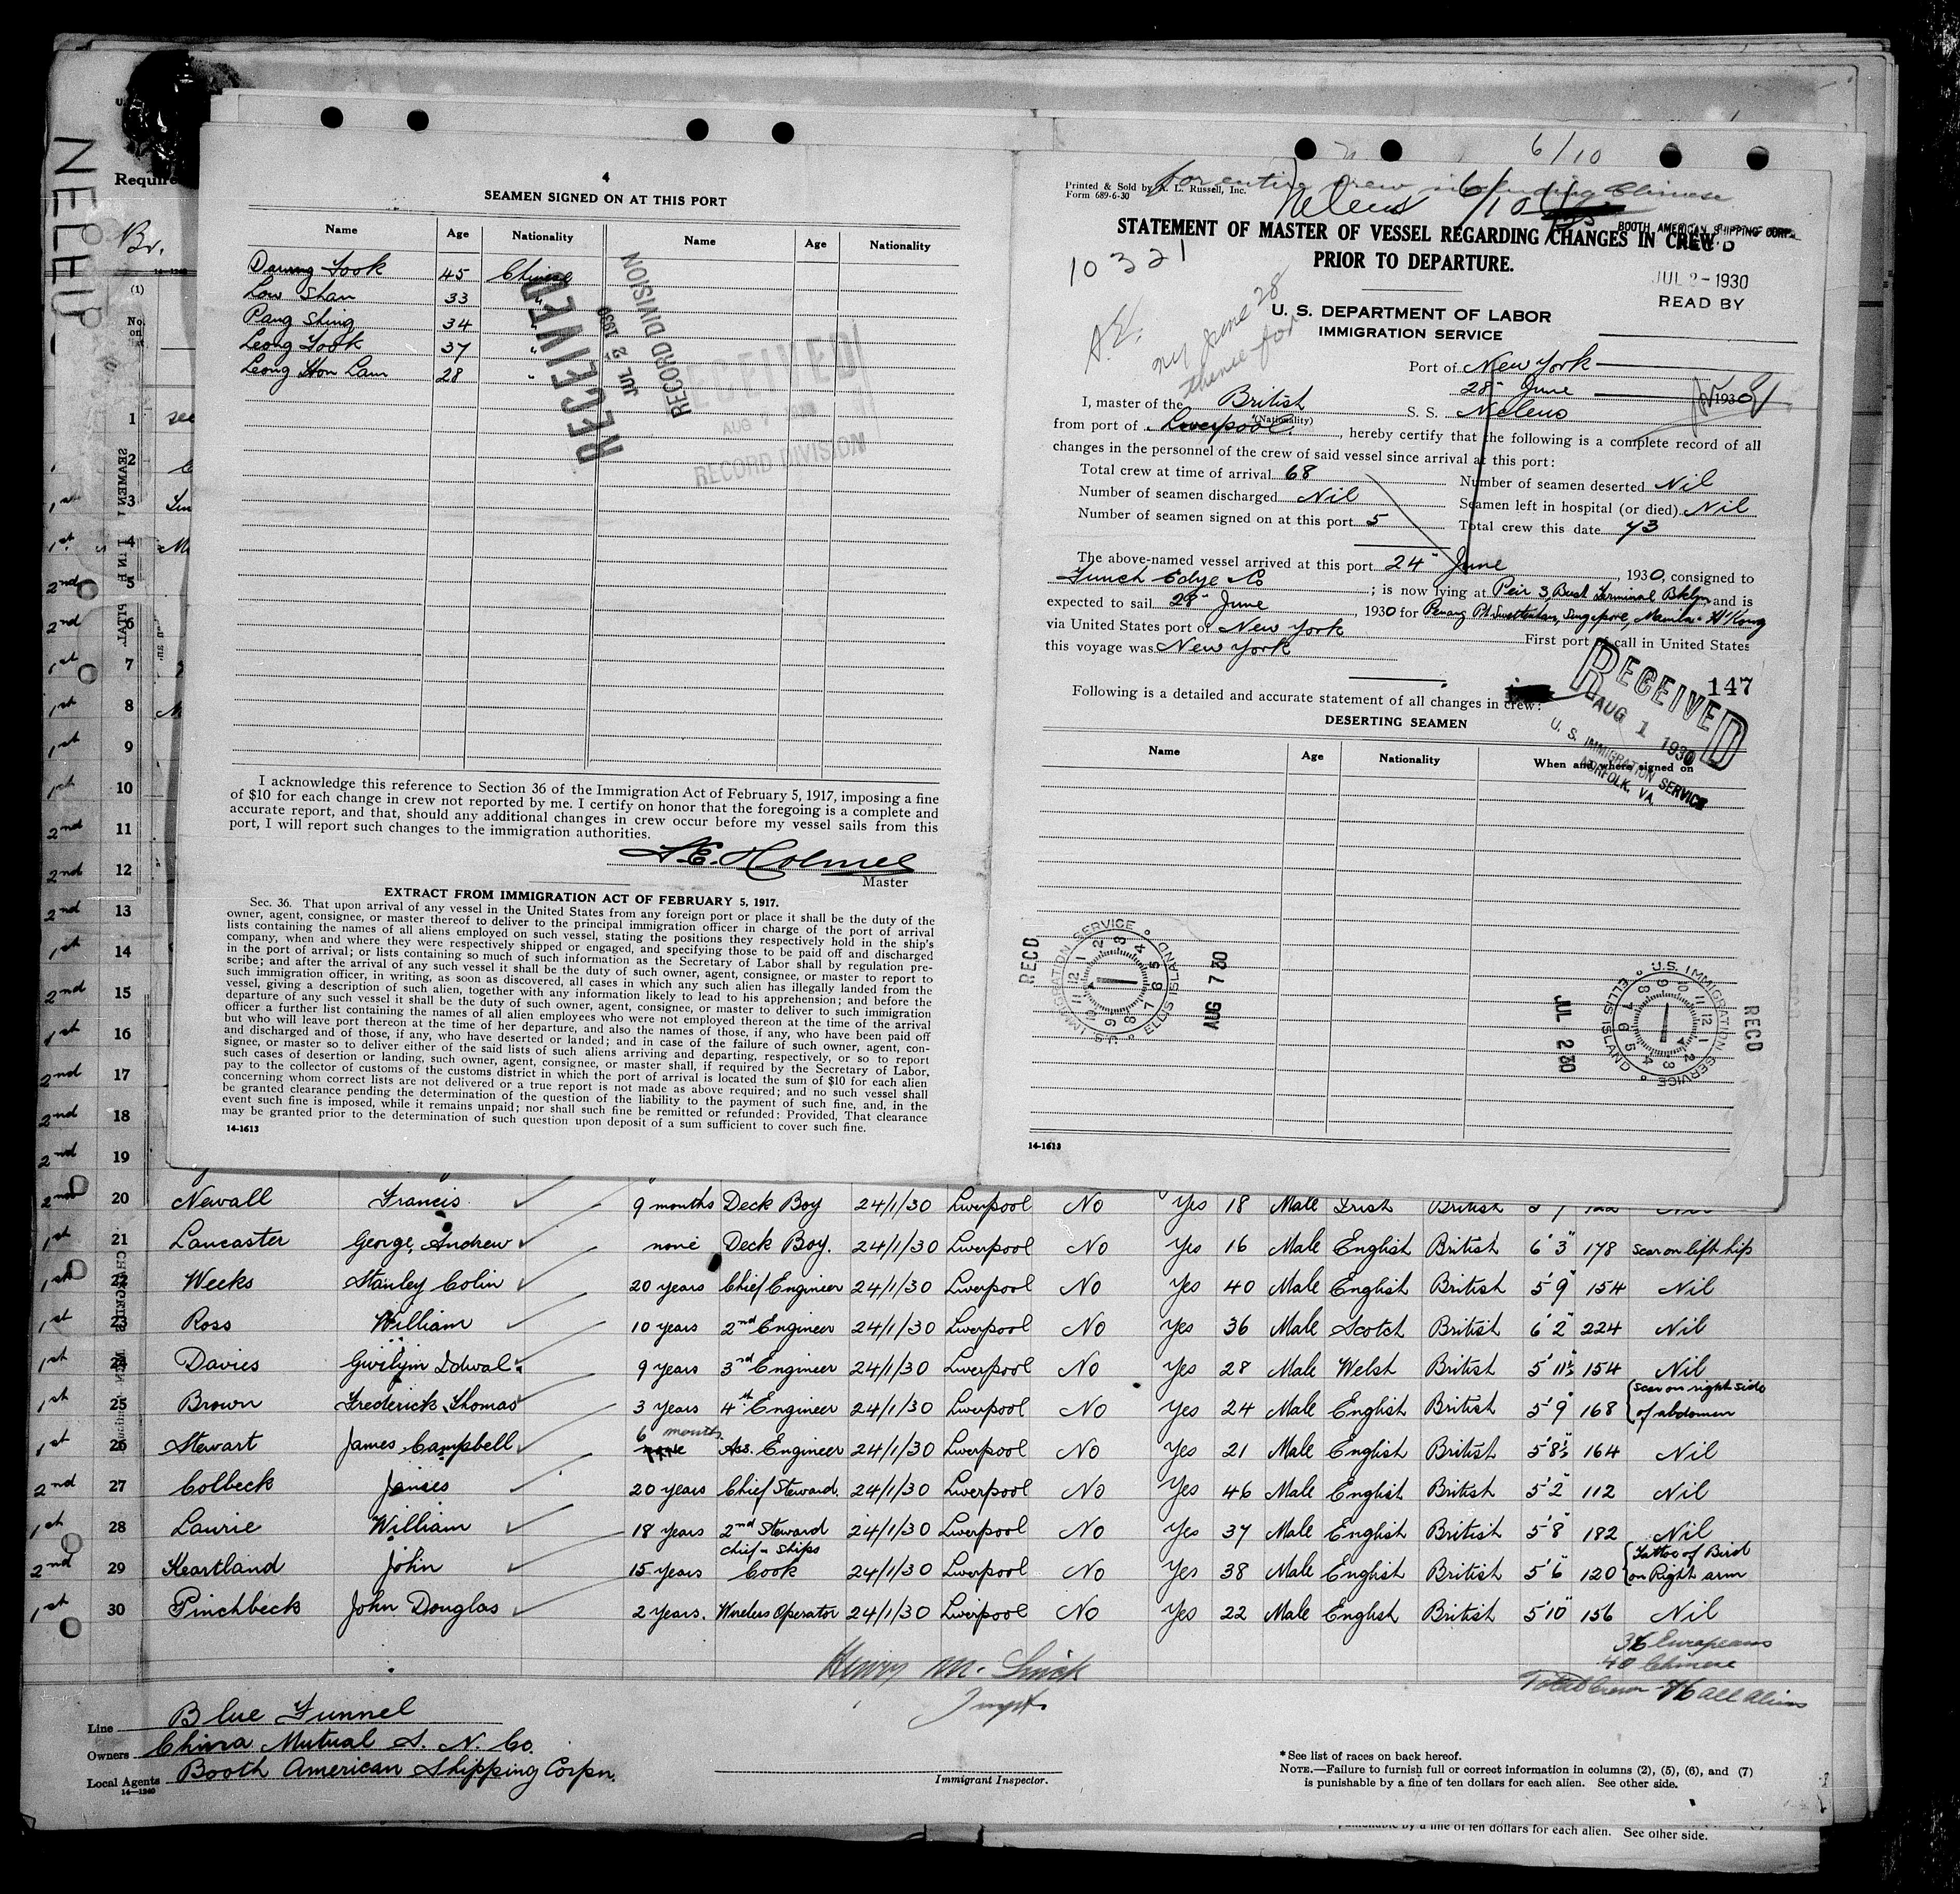 NELEUS
Require
Br.
4
SEAMEN SIGNED ON AT THIS PORT
Name Age Nationality Name Age Nationality
Darung Fook 45 Chinese
Low Shan 33 "
Pang Shing 34 "
Leong Fook 37 "
Leong Hon Lam 28 "
RECEIVED
JUL 2 1930
RECORD DIVISION
RECEIVED
AUG 7
RECORD DIVISION
I acknowledge this reference to Section 36 of the Immigration Act of February 5, 1917, imposing a fine
of $10 for each change in crew not reported by me. I certify on honor that the foregoing is a complete and
accurate report, and that, should any additional changes in crew occur before my vessel sails from this
port, I will report such changes to the immigration authorities.
Holmes
Master
EXTRACT FROM IMMIGRATION ACT OF FEBRUARY 5, 1917.
Sec. 36. That upon arrival of any vessel in the United States from any foreign port or place it shall be the duty of the
owner, agent, consignee, or master thereof to deliver to the principal immigration officer in charge of the port of arrival
lists containing the names of all aliens employed on such vessel, stating the positions they respectively hold in the ship's
company, when and where they were respectively shipped or engaged, and specifying those to be paid off and discharged
in the port of arrival; or lists containing so much of such information as the Secretary of Labor shall by regulation pre-
scribe; and after the arrival of any such vessel it shall be the duty of such owner, agent, consignee, or master to report to
such immigration officer, in writing, as soon as discovered, all cases in which any such alien has illegally landed from the
vessel, giving a description of such alien, together with any information likely to lead to his apprehension; and before the
departure of any such vessel it shall be the duty of such owner, agent, consignee, or master to deliver to such immigration
officer a further list containing the names of all alien employees who were not employed thereon at the time of the arrival
but who will leave port thereon at the time of her departure, and also the names of those, if any, who have been paid off
and discharged and of those, if any, who have deserted or landed; and in case of the failure of such owner, agent, con-
signee, or master so to deliver either of the said lists of such aliens arriving and departing, respectively, or so to report
such cases of desertion or landing, such owner, agent, consignee, or master, shall, if required by the Secretary of Labor,
pay to the collector of customs of the customs district in which the port of arrival is located the sum of $10 for each alien
concerning whom correct lists are not delivered or a true report is not made as above required; and no such vessel shall
be granted clearance pending the determination of the question of the liability to the payment of such fine, and, in the
event such fine is imposed, while it remains unpaid; nor shall such fine be remitted or refunded: Provided, That clearance
may be granted prior to the determination of such question upon deposit of a sum sufficient to cover such fine.
14-1613
6/10
for entire crew including Chinese
Printed & Sold by A. L. Russell, Inc.
Form 689-6-30
Neleus 6/10
BOOTH AMERICAN SHIPPING CORP.
STATEMENT OF MASTER OF VESSEL REGARDING CHANGES IN CREW
PRIOR TO DEPARTURE.
10321
JUL 2-1930
READ BY
U. S. DEPARTMENT OF LABOR
IMMIGRATION SERVICE
ny June 28
thence for
Port of New York
28" June 1930
I, master of the British S. S. Neleus
(Nationality)
from port of Liverpool, hereby certify that the following is a complete record of all
changes in the personnel of the crew of said vessel since arrival at this port:
Total crew at time of arrival 68 Number of seamen deserted Nil
Number of seamen discharged Nil Seamen left in hospital (or died) Nil
Number of seamen signed on at this port 5 Total crew this date 73
The above-named vessel arrived at this port 24" June, 1930, consigned to
Funch Edye & Co; is now lying at Peir 3, Bush Terminal Bklyn and is
expected to sail 28" June, 1930 for Penang Pt Swettenham, Singapore, Manila H'Kong
via United States port of New York First port of call in United States
this voyage was New York
147
Following is a detailed and accurate statement of all changes in crew:
RECEIVED
AUG 1 1930
U. S. IMMIGRATION SERVICE
NORFOLK, VA.
DESERTING SEAMEN
Name Age Nationality When and where signed on
RECD
U.S. IMMIGRATION SERVICE ELLIS ISLAND
AUG 7 30
JUL 2 30
U.S. IMMIGRATION SERVICE ELLIS ISLAND
RECD
14-1613
2nd 20 Newall Francis 9 months Deck Boy 24/1/30 Liverpool No Yes 18 Male Irish British
1st 21 Lancaster George Andrew none Deck Boy. 24/1/30 Liverpool No Yes 16 Male English British 6'3" 178 scar on left hip
1st 22 Weeks Stanley Colin 20 years Chief Engineer 24/1/30 Liverpool No Yes 40 Male English British 5'9" 154 Nil
1st 23 Ross William 10 years 2nd Engineer 24/1/30 Liverpool No Yes 36 Male Scotch British 6'2" 224 Nil
1st 24 Davies Gwilym Idwal 9 years 3rd Engineer 24/1/30 Liverpool No Yes 28 Male Welsh British 5'11½ 154 Nil
1st 25 Brown Frederick Thomas 3 years 4th Engineer 24/1/30 Liverpool No Yes 24 Male English British 5'9" 168 scar on right side of abdomen
1st 26 Stewart James Campbell 6 months Ass. Engineer 24/1/30 Liverpool No Yes 21 Male English British 5'8½" 164 Nil
2nd 27 Colbeck James 20 years Chief Steward. 24/1/30 Liverpool No Yes 46 Male English British 5'2" 112 Nil
1st 28 Laurie William 18 years 2nd Steward 24/1/30 Liverpool No Yes 37 Male English British 5'8" 182 Nil
2nd 29 Heartland John 15 years Chief - Ships Cook 24/1/30 Liverpool No Yes 38 Male English British 5'6" 120 Tattoo of Bird on Right arm
1st 30 Pinchbeck John Douglas 2 years. Wireless Operator 24/1/30 Liverpool No Yes 22 Male English British 5'10" 156 Nil
36 Europeans
40 Chinese
Total Crew 76 all aliens
Henry M.
Line Blue Funnel
Owners China Mutual S. N. Co.
Local Agents Booth American Shipping Corpn.
14-1240
Immigrant Inspector.
*See list of races on back hereof.
NOTE.—Failure to furnish full or correct information in columns (2), (5), (6), and (7)
is punishable by a fine of ten dollars for each alien. See other side.
punishable by a fine of ten dollars for each alien. See other side.